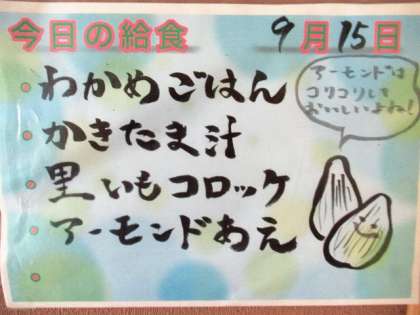 今日の給食 9月15日
わかめごはん
かきたま汁
里いもコロッケ
アーモンドあえ
アーモンドは
コリコリして
おいしいよね!